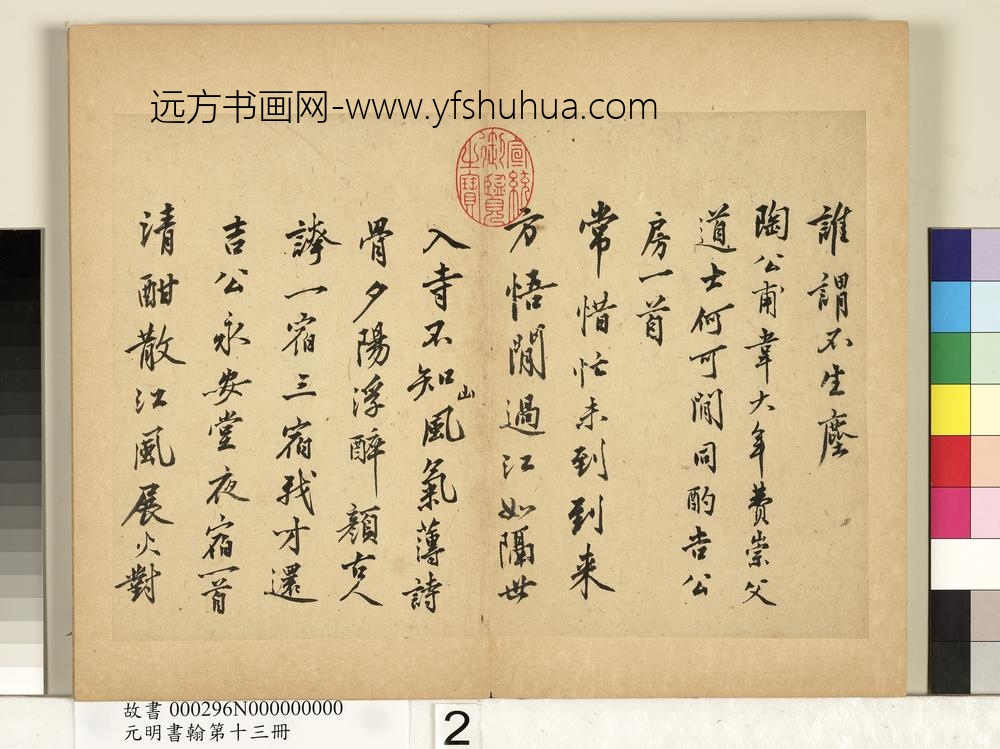 远方书画网-www.yfshuhua.com
宣統
御覽
之寶
誰謂不生塵
陶公甫韋大年費崇父
道士何可閒同酌吉公
房一首
常惜忙未到到来
方悟閒過江如隔世
入寺不知山風氣薄詩
骨夕陽浮醉顏古人
一宿三宿我才還
吉公永安堂夜宿一首
清酣散江風展火對
故書 000296N000000000
元明書翰第十三冊
2